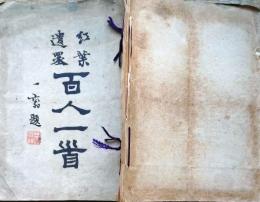 紅葉
遺墨
百人一首
一齋題